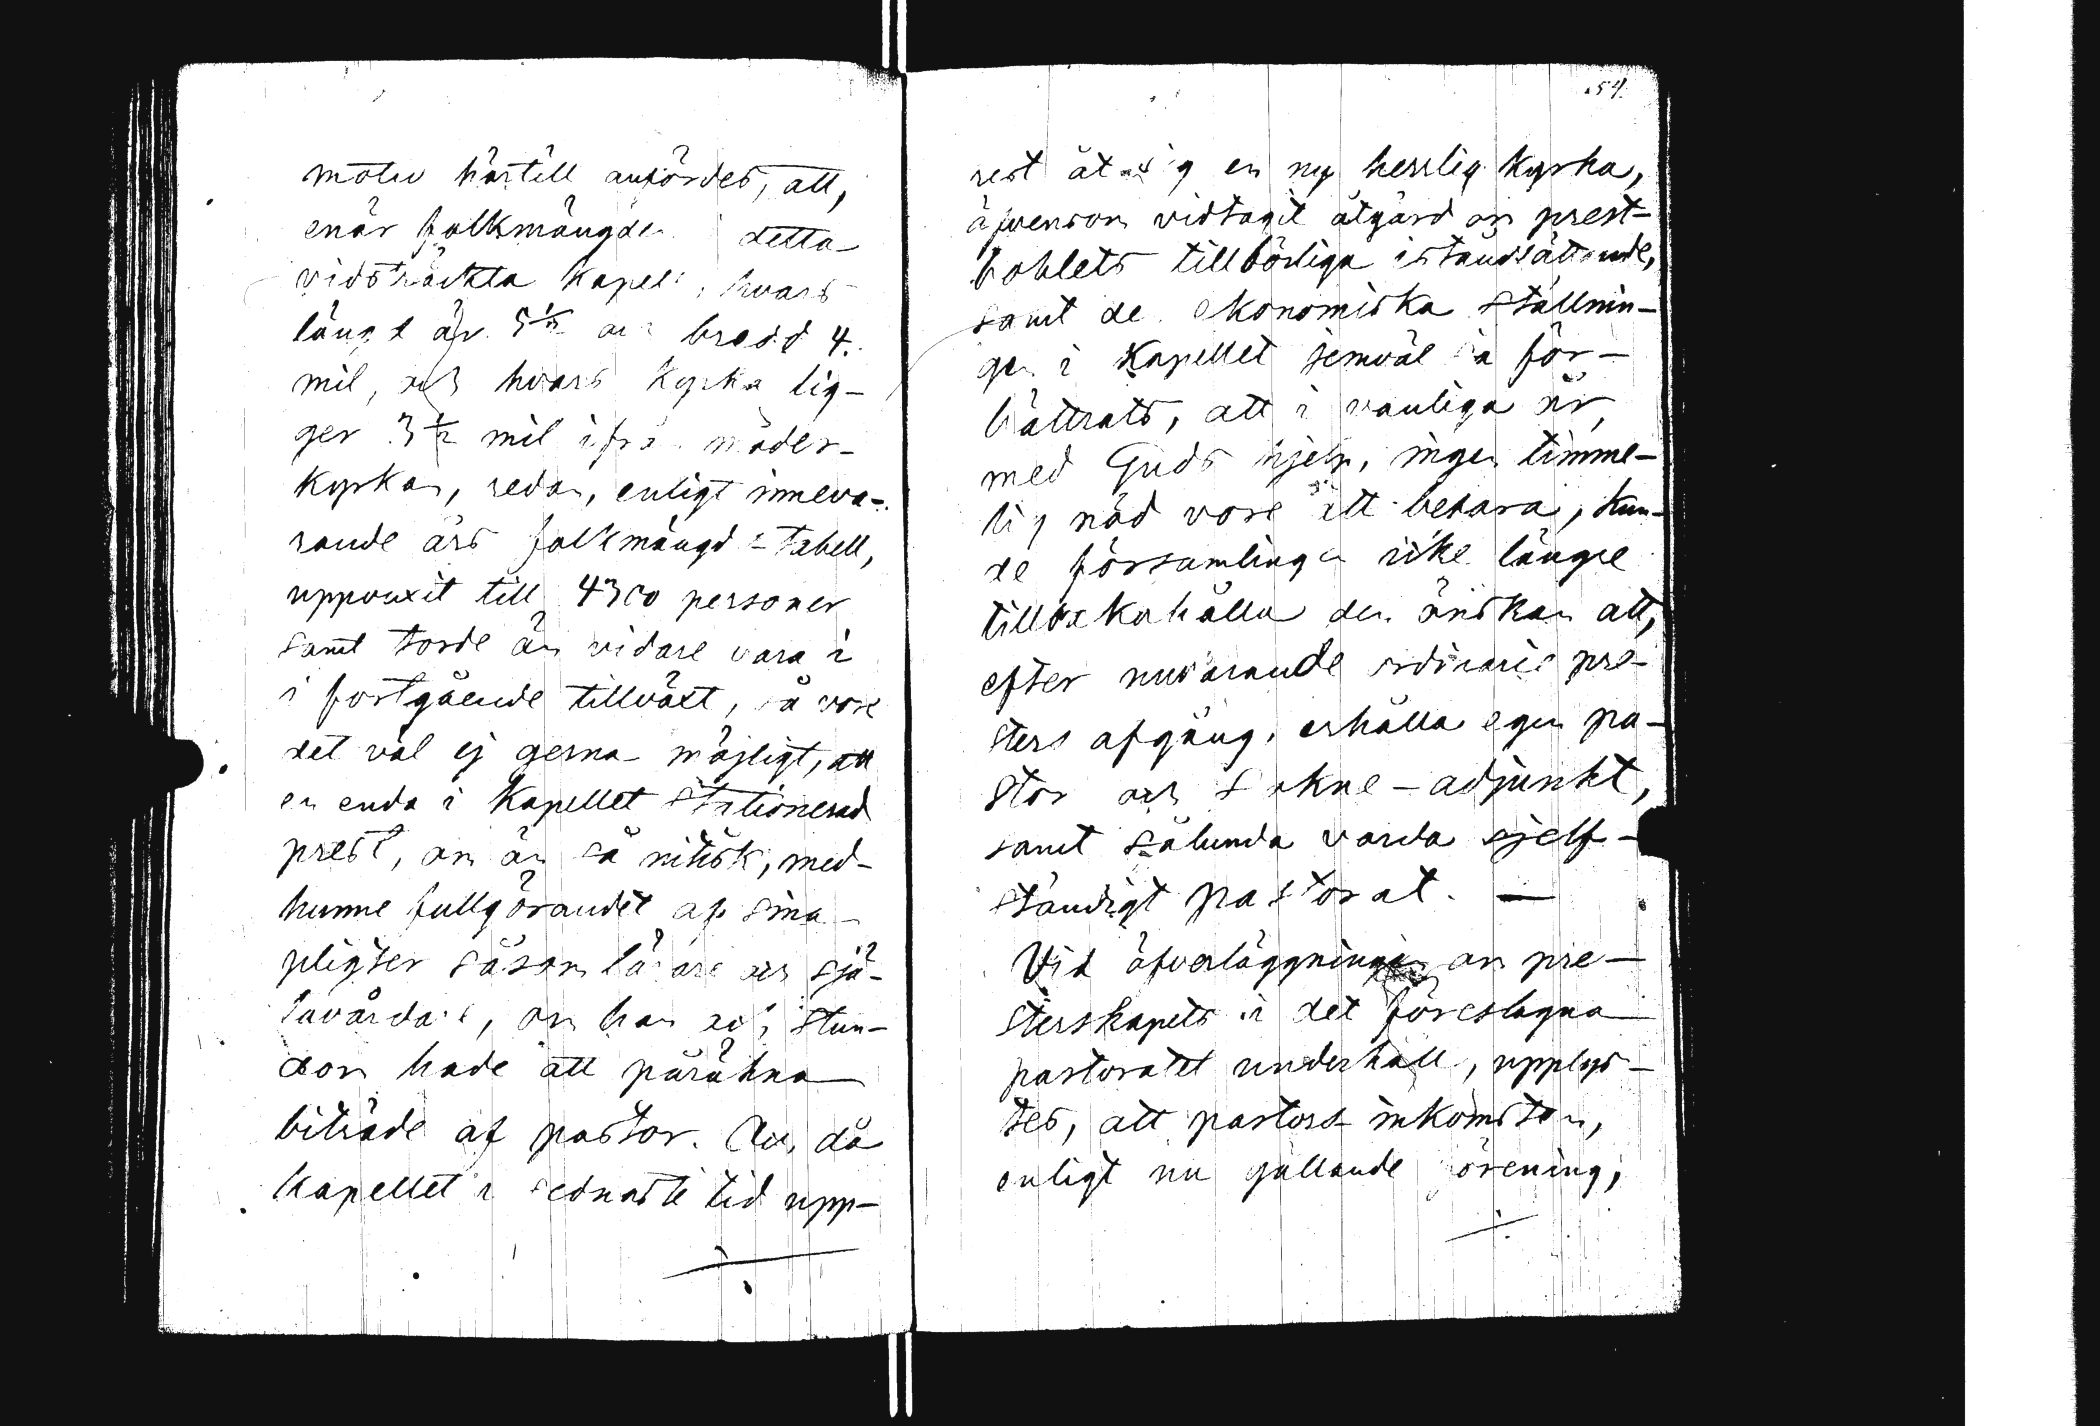 motiv härtill anfördes, att,
enär folkmängden i detta
vidsträckta kapell, hvars
längd är 5 1/2 och bredd 4.
mil, och hvars kyrka lig-
ger 3 1/2 mil ifrån moder-
kyrkan, redan, enligt inneva-
rande års folkmängd-tabell,
uppvuxit till 4300 personer
samt torde än vidare vara i
i fortgående tillväxt, så vore
det väl ej gerna möjligt, att
en enda i kapellet stationerad
prest, om än så nitisk, med-
hunne fullgörandet af sina
pligter såsom lärare och sjä-
lavårdare, om han och stun-
dom hade att påräkna
biträde af pastor. Och, då
kapellet i sednaste tid upp-
54.
rest åt sig en ny herrlig kyrka,
äfvensom vidtagit åtgärd om prest-
bohlets tillbörliga iståndsättande,
samt de ekonomiska ställnin-
gen i kapellet jemväl så för-
bättrats, att i vanliga år,
med Guds hjelp, ingen timme-
lig nöd vore att befara, kun-
de församlingen icke längre
tillbakahålla den önskan att,
efter nuvarande ordinarie pre-
sters afgång, erhålla egen pa-
stor och Sokne-adjunkt,
samt sålunda varda sjelf-
ständigt pastorat. —
Vid öfverläggningen om pre-
sterskapets i det föreslagna
pastoratet underhåll, upplys-
tes, att pastors inkomsten,
enligt nu gällande förening,